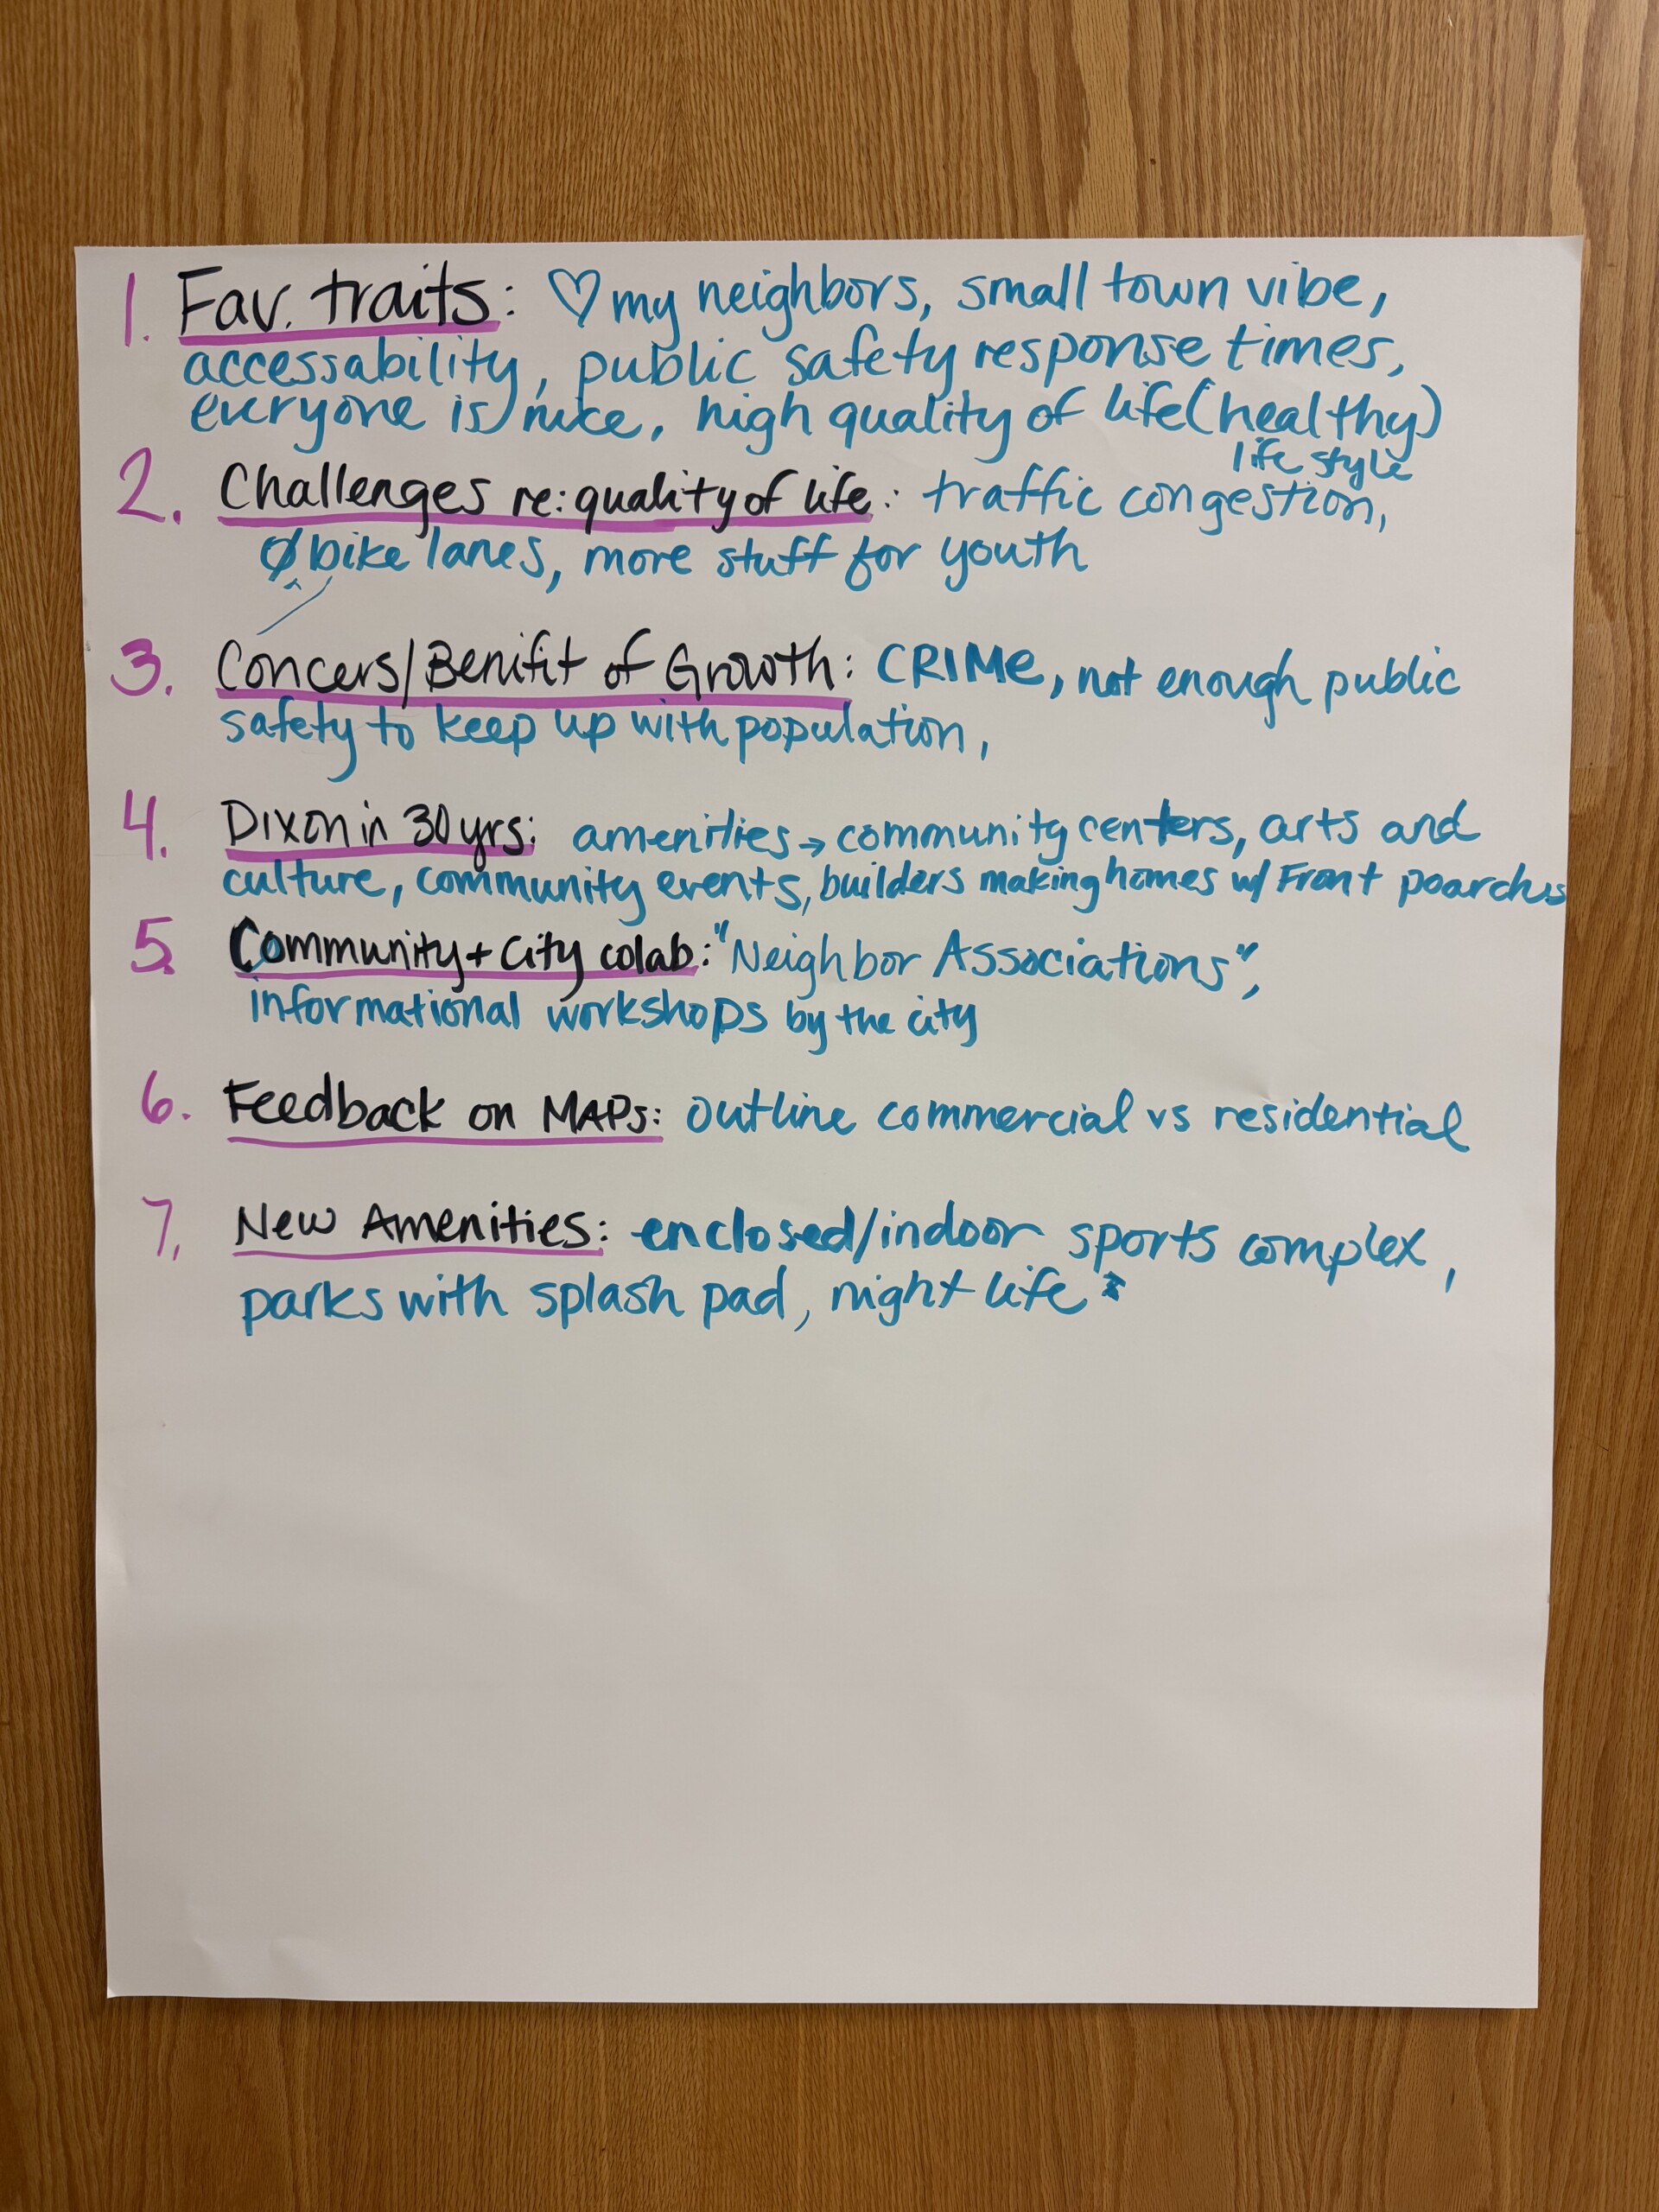 1. Fav. traits: ♡ my neighbors, small town vibe,
accessability, public safety response times,
everyone is nice, high quality of life (healthy)
life style
2. Challenges re: quality of life: traffic congestion,
Ø bike lanes, more stuff for youth
3. Concers/Benifit of Growth: CRIME, not enough public
safety to keep up with population,
4. Dixon in 30 yrs: amenities → community centers, arts and
culture, community events, builders making homes w/ Front poarches
5. Community + City colab: "Neighbor Associations",
informational workshops by the city
6. Feedback on MAPs: outline commercial vs residential
7. New Amenities: enclosed/indoor sports complex,
parks with splash pad, night life